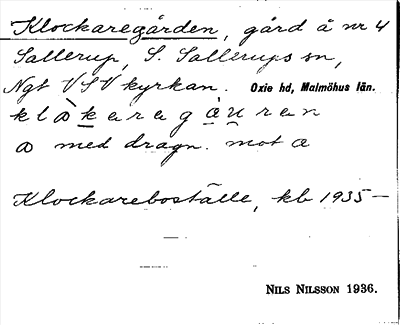 Klockaregården, gård å nr 4
Sallerup, S. Sallerups sn,
Ngt VSV kyrkan. Oxie hd, Malmöhus län.
klɔ̀karagàuran
ɔ med dragn. mot a
Klockareboställe, kb 1935—
NILS NILSSON 1936.